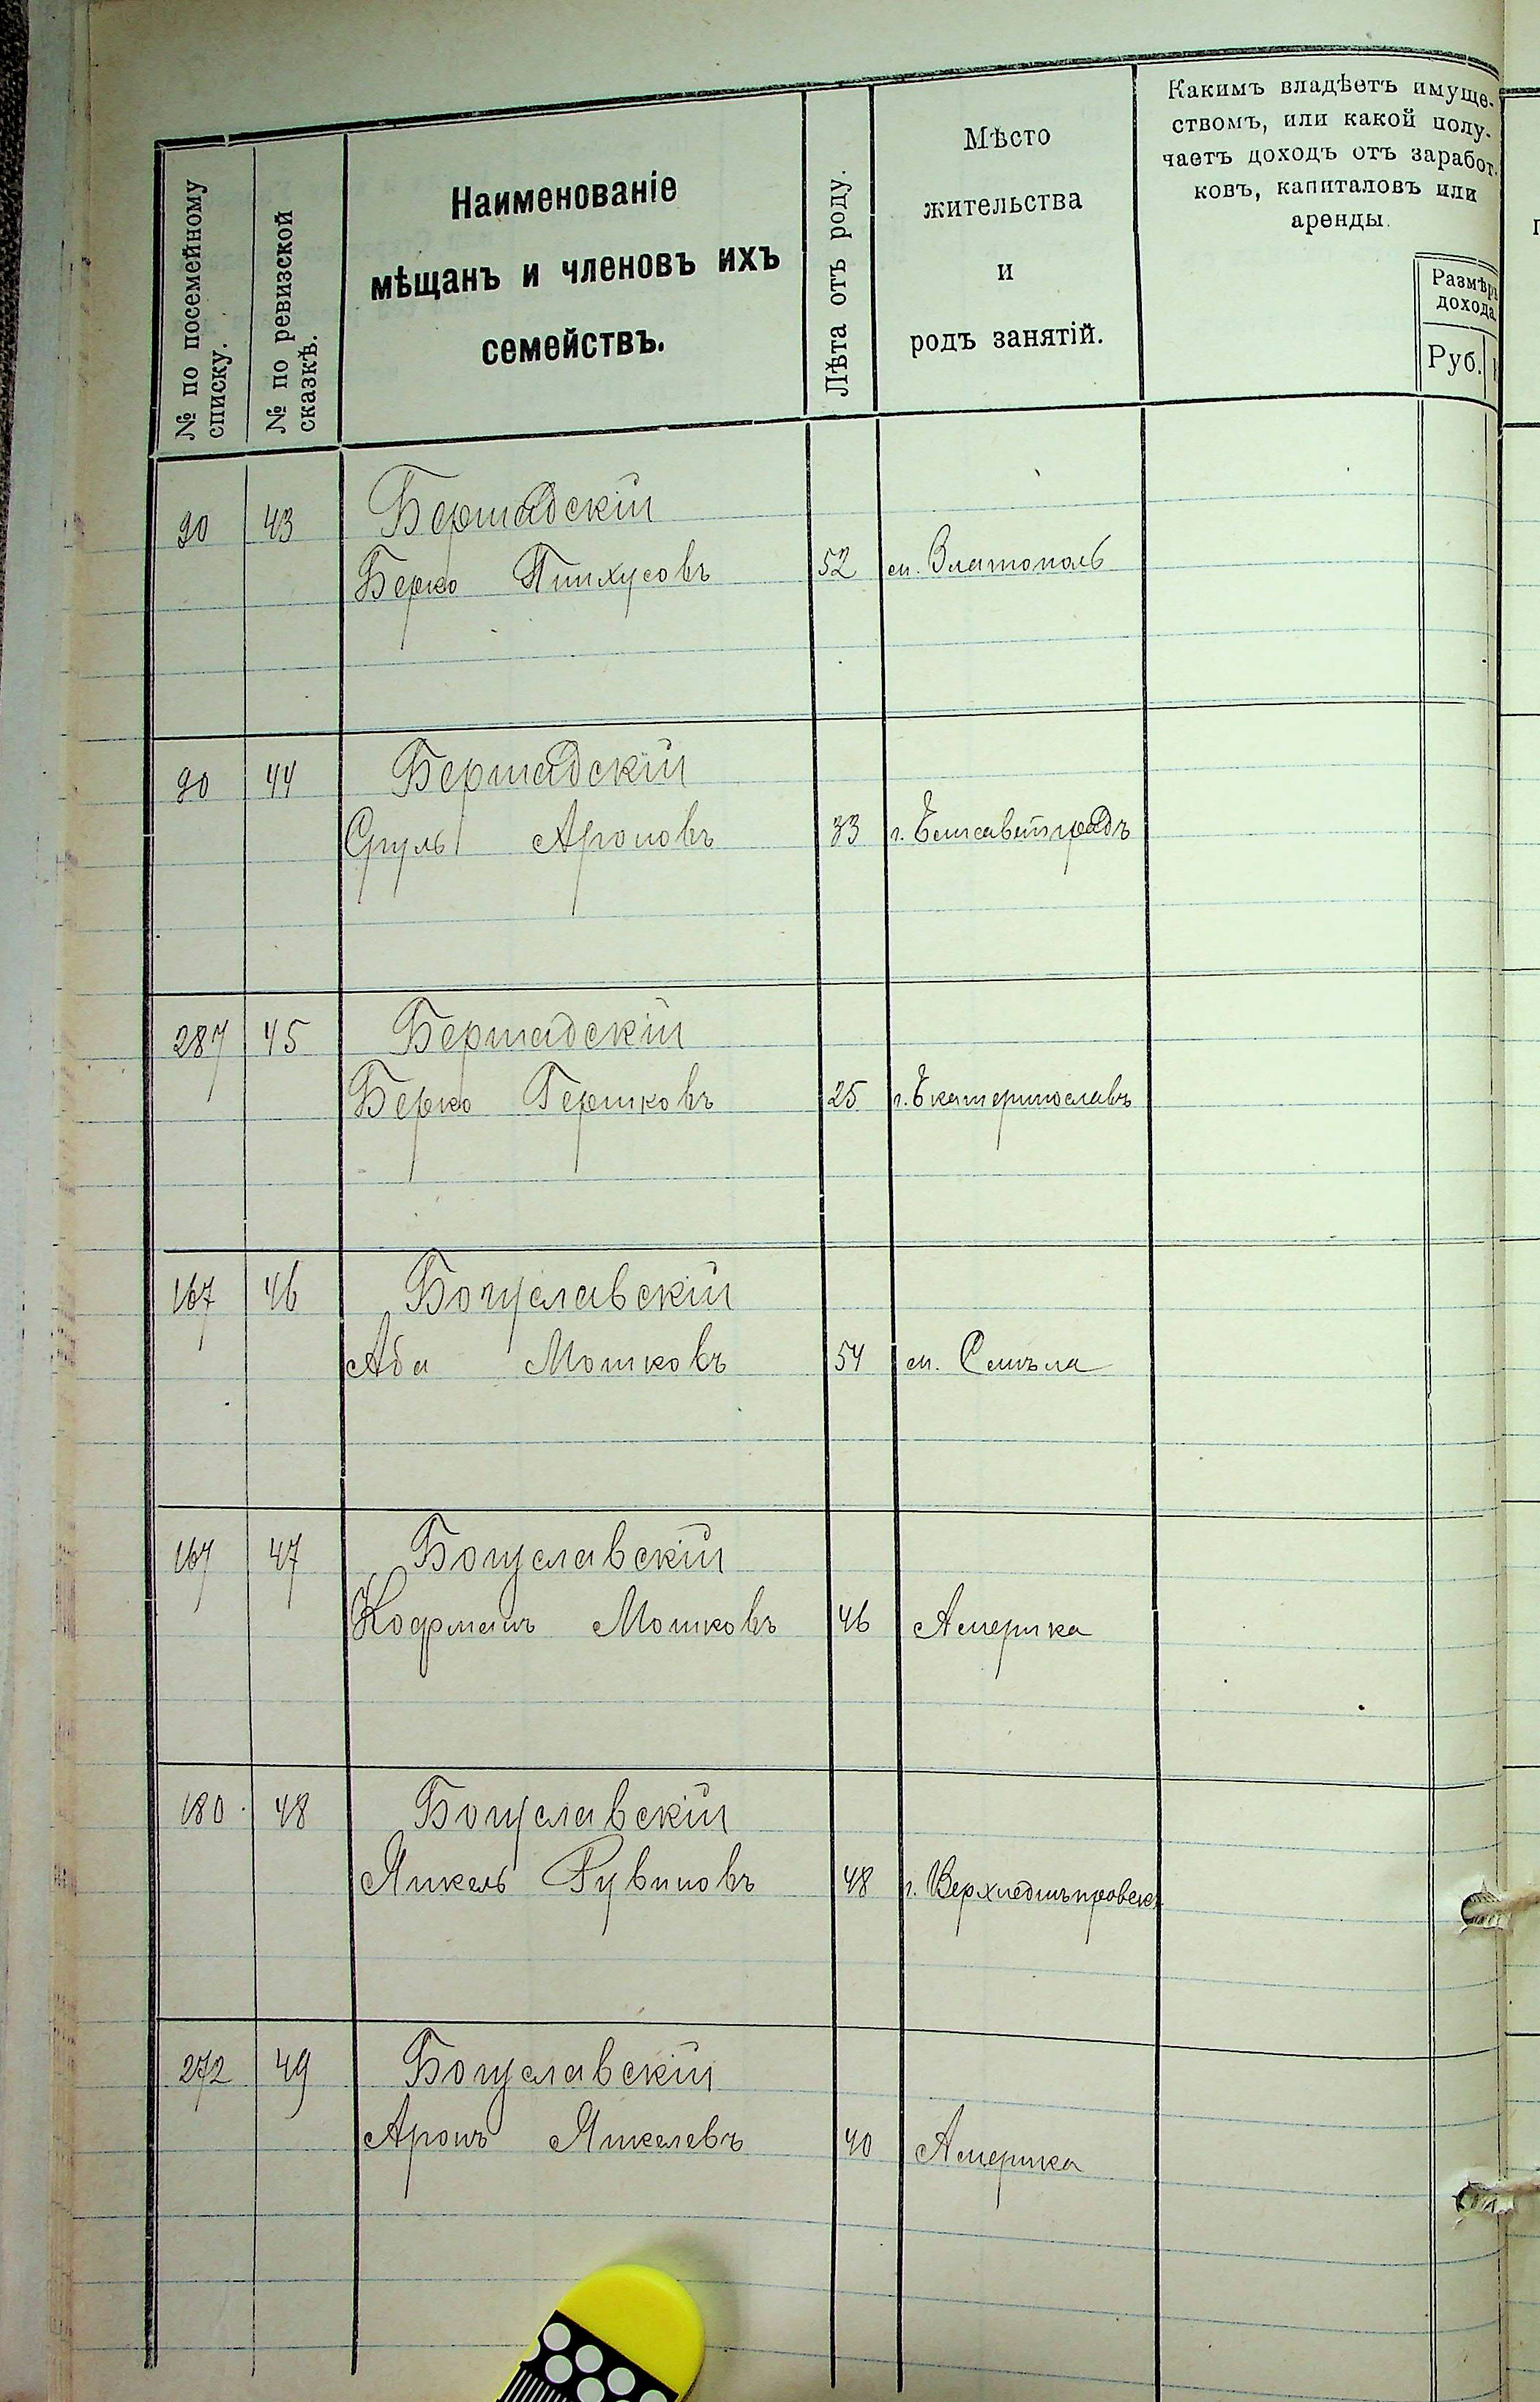 № по посемейному
списку.
№ по ревизской
сказкѣ.
Наименованіе
мѣщанъ и членовъ ихъ
семействъ.
Лѣта отъ роду.
Мѣсто
жительства
и
родъ занятій.
Какимъ владѣетъ имуще-
ствомъ, или какой полу-
чаетъ доходъ отъ заработ-
ковъ, капиталовъ или
аренды.
Размѣръ
дохода.
Руб.
90 43 Бершадскій
Берко Пинхусовъ 52 м. Златополь
90 44 Бершадскій
Сруль Ароновъ 33 г. Елисаветградъ
287 45 Бершадскій
Берко Гершковъ 25 г. Екатеринославъ
167 46 Богуславскій
Аба Мошковъ 54 м. Смѣла
167 47 Богуславскій
Кофманъ Мошковъ 46 Америка
180 48 Богуславскій
Янкель Рувиновъ 48 г. Верхнеднѣпровскъ
272 49 Богуславскій
Аронъ Янкелевъ 40 Америка